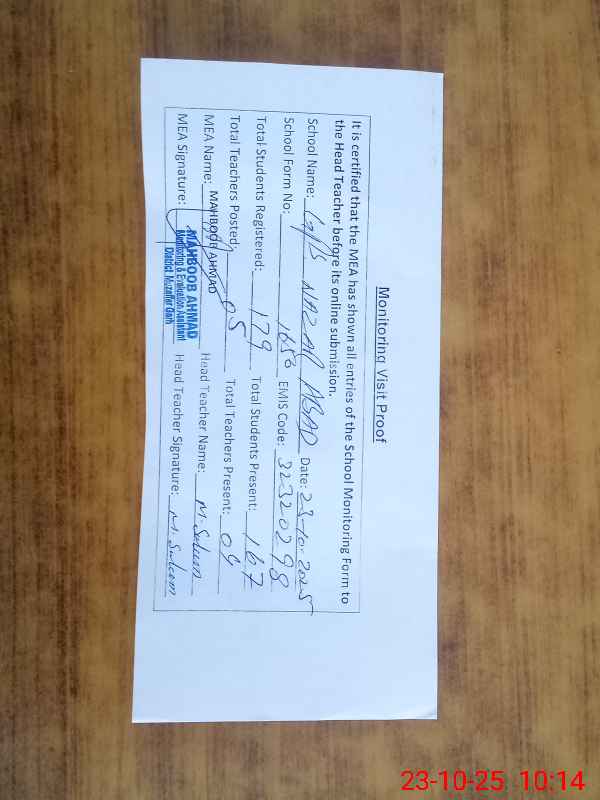 Monitoring Visit Proof
It is certified that the MEA has shown all entries of the School Monitoring Form to
the Head Teacher before its online submission.
School Name: NAZAR ABAD Date: 23-10-2025
School Form No: 1656 EMIS Code: 32320298
Total Students Registered: 179 Total Students Present: 167
Total Teachers Posted: 05 Total Teachers Present: 04
MEA Name: MAHBOOB AHMAD Head Teacher Name: M. Saleem
MEA Signature: Head Teacher Signature: M. Saleem
MAHBOOB AHMAD
Monitoring & Evaluation Assistant
District Muzaffar Garh
23-10-25 10:14